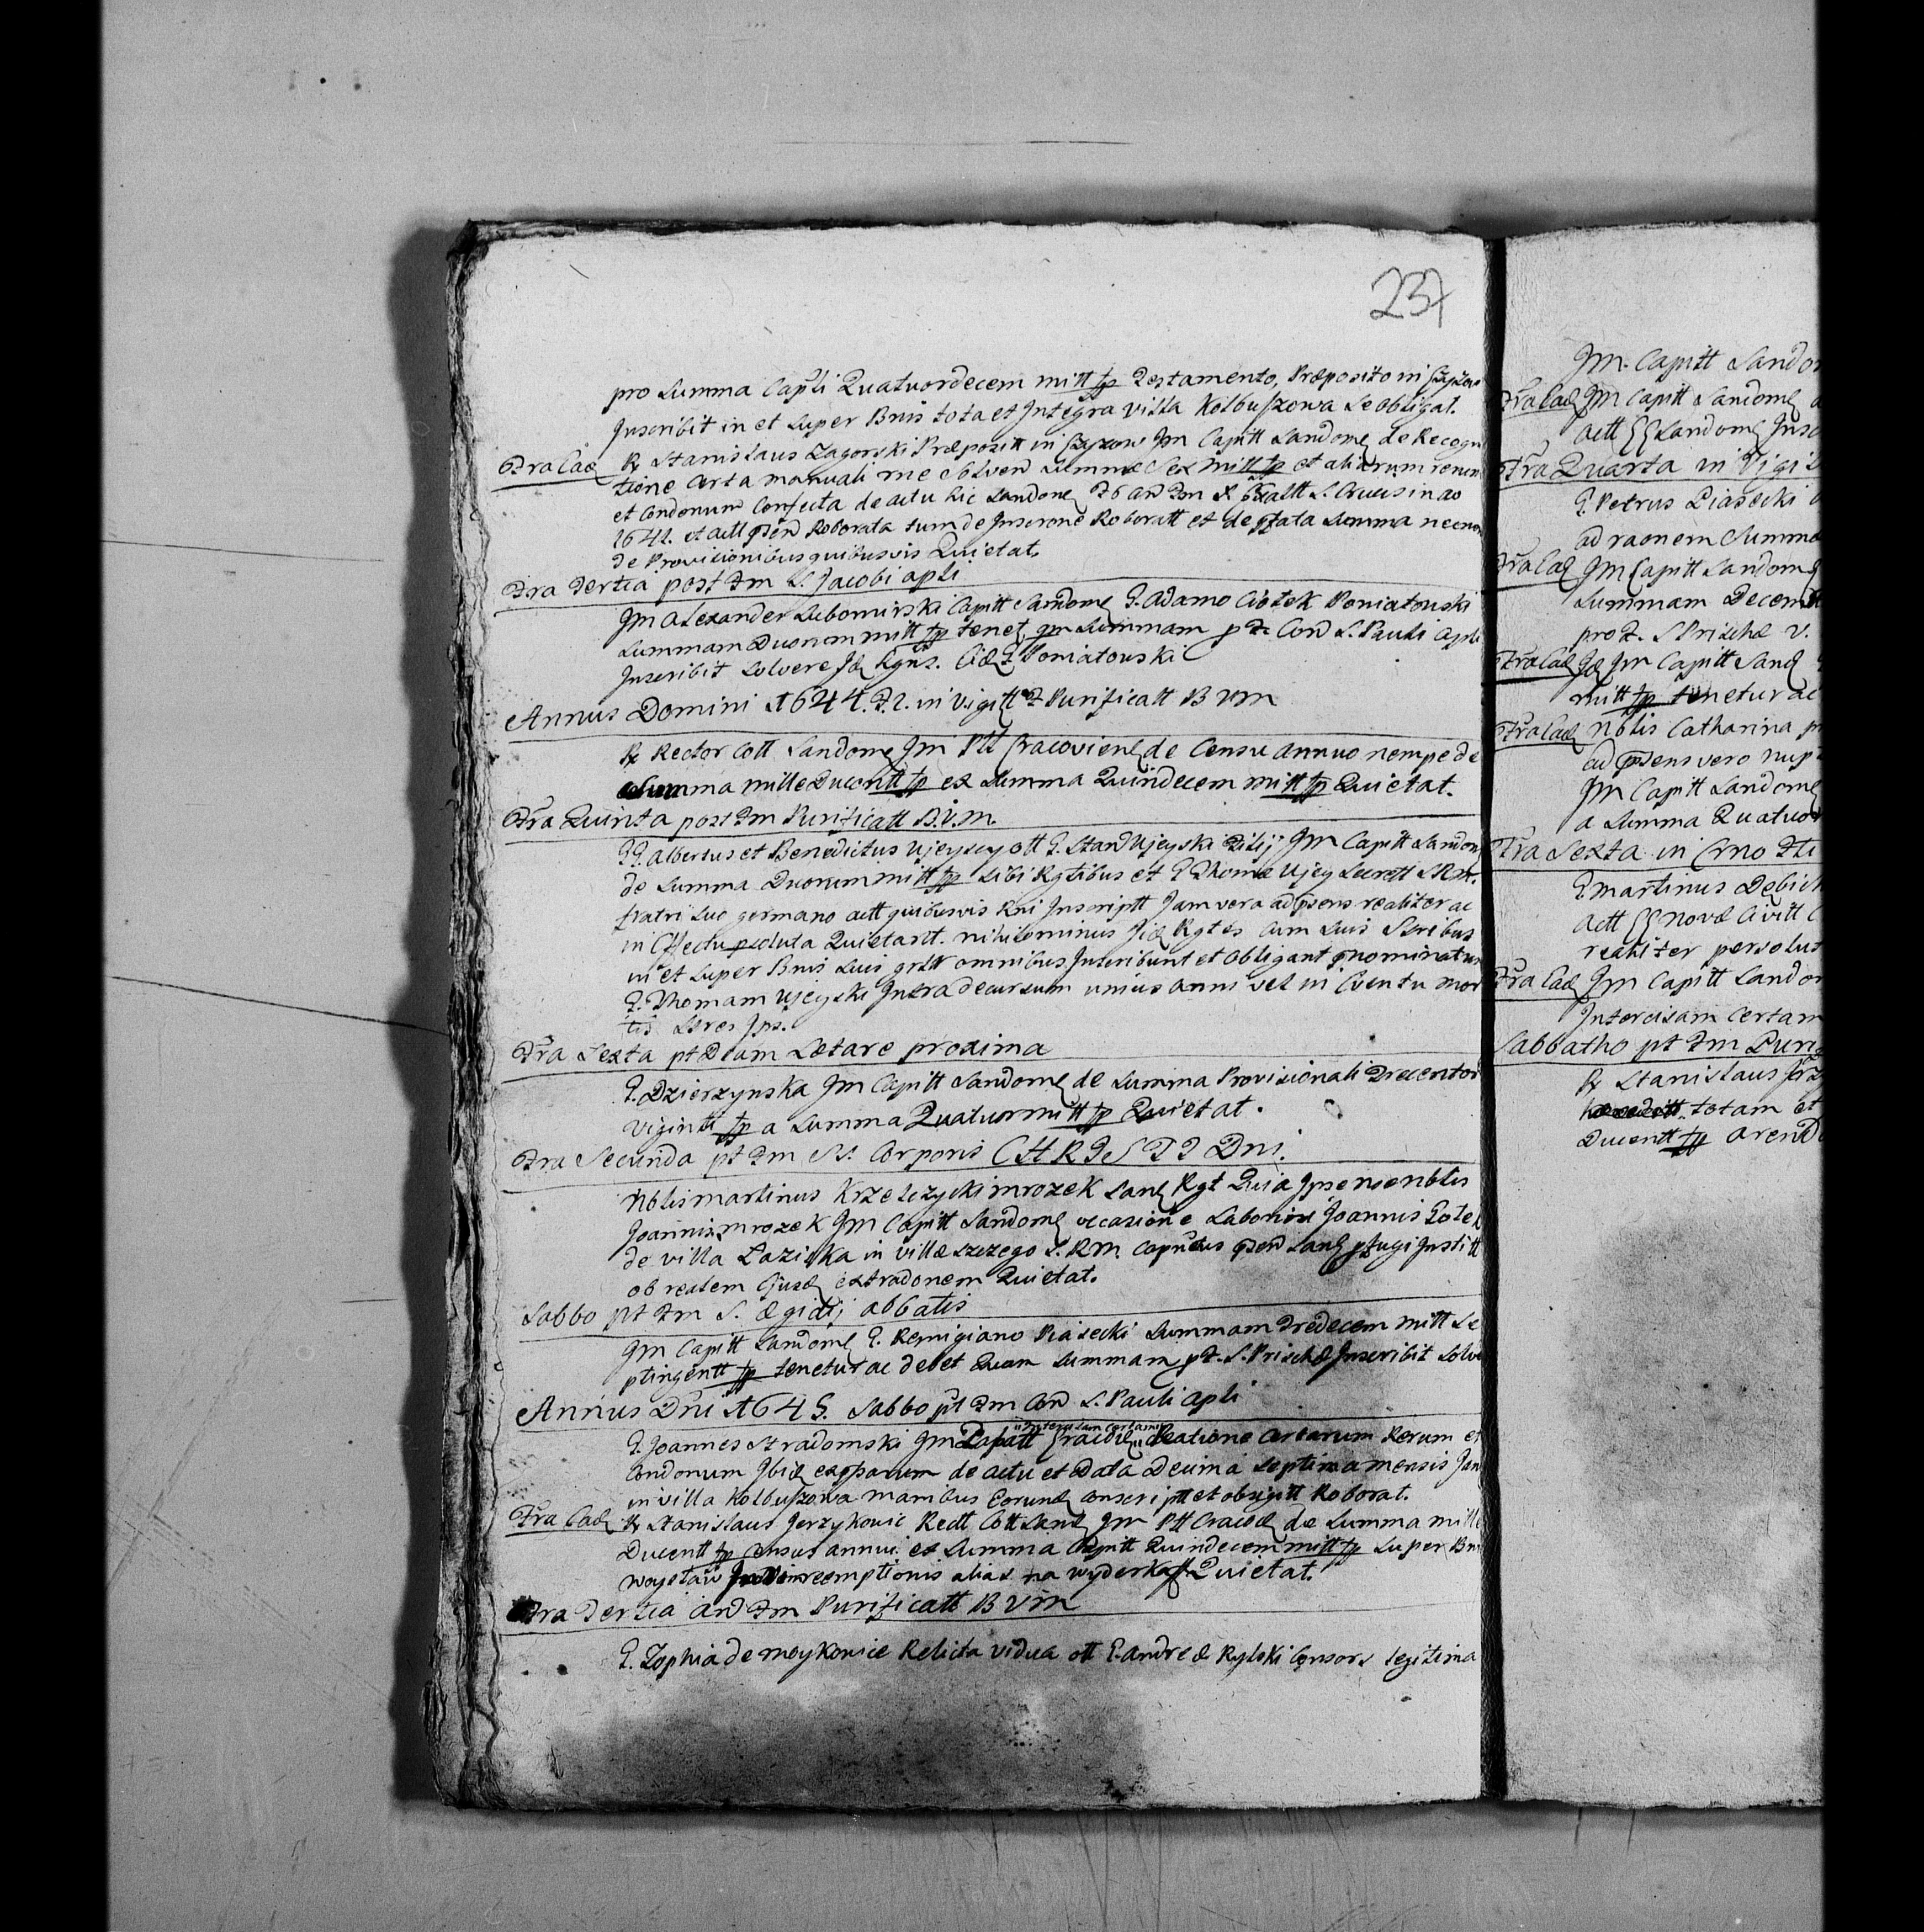 237
pro Summa Capli Quatuordecem mill fp Testamento, Præposito in
Inscribit in et super Bnis tota et Integra villa Kolbuszowa se obligat.
Fra Ead R Stanislaus Zagorski Præposit in Czyzow Jm Capitt Sandom de Recogni
tione certa manuali rne Solven Summæ Sex mill fp et aliarum rerum
et Condonum Confecta de actu hic Sandom F 6 an Fm Exalt S. Crucis in ao
1641. et act psen Roborata tum de Inscrone Roboratt et de pfata Summa necnon
de Provisionibus quibusvis Quietat.
Fra Tertia post Fm S. Jacobi apli
Jm Alexander Lubomirski Capitt Sandom G. Adamo Ciołek Poniatouski
Summam Duorum mill fp tenet, qm Summam p F. Con S. Pauli Apli
Inscribit solvere Id Rgns. Eid G Poniatouski
Annus Domini 1644. F. 2. in Vigill F Purificatt B V M
R Rector Coll Sandom Jm Pll Cracovien de Censu annuo nempe de
Summa mille Ducentt fp ex Summa Quindecem mill fp Quietat.
Fra Quinta post Fm Purificatt B. V. M.
GG. Albertus et Benedictus Ujeyscy olt G. Stan Ujeyski Filij Jm Capitt Sandom
de Summa Duorum mill fp sibi Rgtibus et G Thomæ Ujey Secrett S R M.
fratri suo germano actt quibusvis Rni Inscriptt Jam vero ad psens realiter ac
in Effectu psoluta Quietant. nihilominus Iid Rgtes cum suis Sscribus
in et super Bnis suis grlt omnibus Inscribunt et obligant pnominatum
G. Thomam Ujeyski Intra decursum unius anni vel in Eventu mor
tis Ssres Ips.
Fra Sexta pt Dcam Lætare proxima
G. Dzierzynska Jm Capitt Sandom de Summa Provisionali Trecentor
viginti fp a Summa Quatuor mill fp Quietat.
Fra Secunda pt Fm SS. Corporis CHRISTI Dni.
Nblis Martinus Krzelczycki Mrozek San Rgt Quia Ipse nenblis
Joannis Mrozek Jm Capitt Sandom occasione Laboriosi Joannis
de villa Laziska in villæ szczego S. R M. Capneus psen San pfugi Instit
ob realem Ejusd extradonem Quietat.
Sabbo pt Fm S. Ægidij abbatis
Jm Capitt Sandom G. Remigiano Piasecki Summam Tredecem mill Se
ptingentt fp tenetur ac debet Quam Summam p F. S. Priscæ Inscribit solve
Annus Dni 1645. Sabbo pt Fm Con S. Pauli apli
"Intercisam certam"
G. Joannes Stradomski Jm Palatt Cracov Ratione certarum Rerum et
Condonum Ibid expssarum de actu et Data Decima septima mensis Jan
in villa Kolbuszowa manibus Eorund conscriptt et obsigitt Roborat.
Fra Ead R Stanislaus Jerzykowic Rectt Coll San Jm Pll Cracov de Summa mille
Ducentt fp Census annui ex Summa Capitt Quindecem mill fp super Bni
woystaw reemptionis alias na wyderkaff Quietat.
Fra Tertia an Fm Purificatt B V M
G. Zophia de moykowice Relicta vidua olt G. Andreæ Rylski Consors legitima
Jm. Capitt Sandom
Fra Ead Jm Capitt Sandom
actt Sandom Insc
Fra Quarta in Vigil
G. Petrus Piasecki
ad raonem Summæ
Fra Ead Jm Capitt Sandom
Summam Decem
pro F. S Priscæ V.
Fra Ead Id Jm Capitt San
mill fp tenetur ac
Fra Ead Nblis Catharina
ad psens vero nup
Jm Capitt Sandom
a Summa Quatuor
Fra Sexta in Crno Fti
G Martinus Debich
actt Novæ Civitt
realiter persolut
Fra Ead Jm Capitt Sandom
Intercisam certam
Sabbatho pt Fm Puri
R Stanislaus Jerz
totam et
Ducentt fp aren